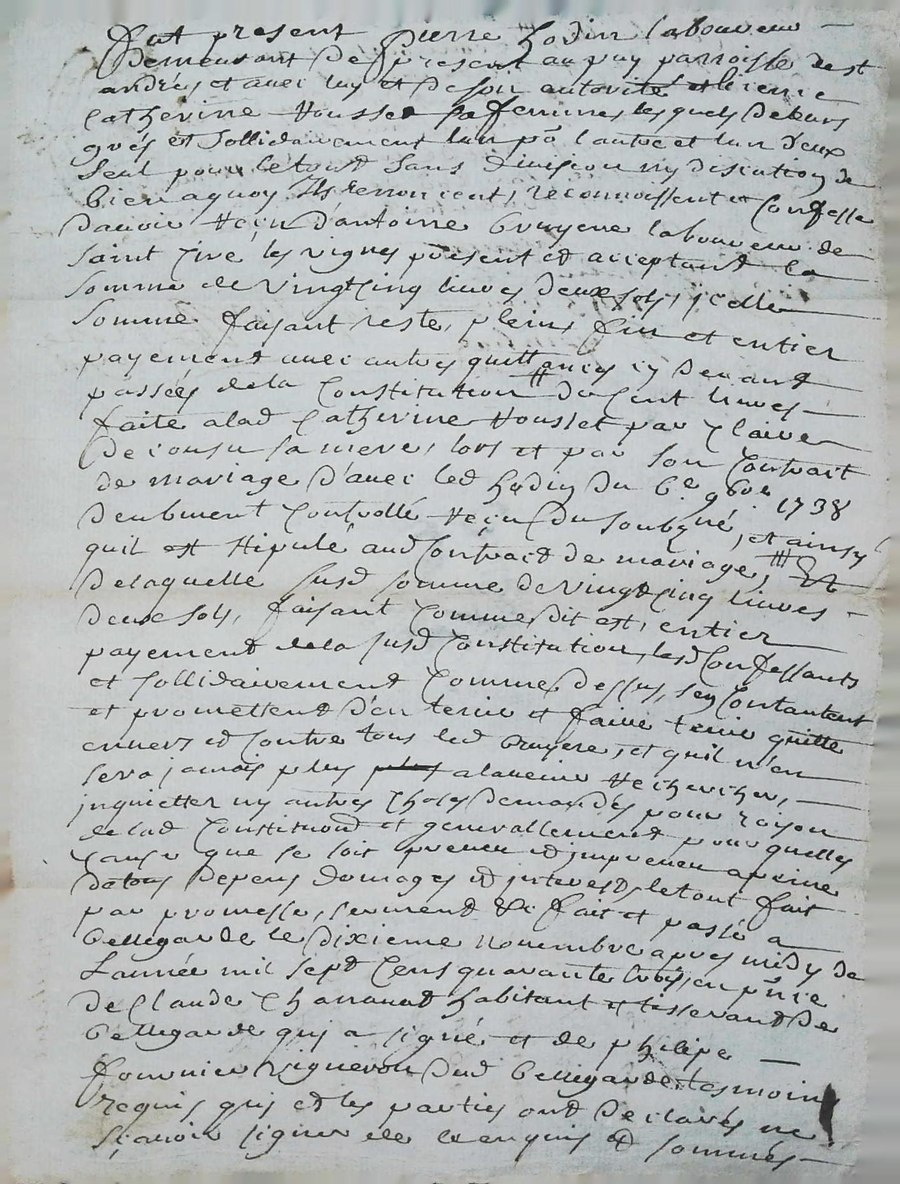 Fut present pierre hodin laboureur
Demeurant de present au puy parroisse de st
andrés et avec luy et de son autorité et licence
Catherine Housset sa femme lesquels de leurs
grés et sollidairement lun pō lautre et lun d'eux
seul pour le tout sans division ny discution de
bien aquoy Ils renoncent, reconnoissent et Confesse
davoir reçu d'antoine bruyere laboureur de
saint Cire les vignes present et acceptant la
somme de vingt cinq livres deux sols, jcelle
somme faisant reste, plein, fin et entier
payement avec autres quittances cy devant
passées de la Constitution de Cent livres
faite a lad Catherine Housset par Claire
Decousu sa mere, lors et par son Contract
de mariage d'avec led hodin du 6e 9bre 1738
deubment Controllé reçu du soubgné, et ainsy
quil est stipulé aud Contract de mariage, Et
De laquelle susd somme de vingt cinq livres
deux sols, faisant Comme dit est, entier
payement de la susd Constitution, lesd Confessants
et sollidairement Comme dessus, sen Contantent
et promettent d'en tenir et faire tenir quitte
envers et Contre tous led bruyere, et quil n'en
sera jamais plus alavenir recherché,
jnquietter ny autres Choses demandés pour raison
de lad Constituon et generallement pour quelles
Cause que se soit preveu et jmpreveu apeine
de tous depens domages et jnterests, le tout fait
par promesse, serment &c fait et passé a
bellegarde le dixieme novembre apres midy de
Lannée mil sept Cens quarante trois en pnce
de Claude Charravat habitant et tisserand de
bellegarde qui a signé et de philipe
fournier vigneron dud bellegarde tesmoins
requis qui et les parties ont declarés ne
sçavoir signer de ce enquis et sommés